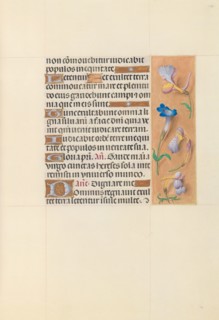 non com̄ouebitur iudicabit
populos in equitate
Letentur celi et exultet terra
commoueatur mare et plenitu
do eius gaudebunt campi et om
nia que in eis sunt
Tunc exultabunt omnia li
gna siluarum a facie dn̄i quia ve
nit quia venit iudicare terram
Iudicabit orbē terre in equi
tate et populos in veritate sua
Gloria pr̄i. an̄. Gaude maria
virgo cunctas hereses sola inte
remisti in uniuerso mundo.
Dignare me
Dominus regnauit exul
tet terra letentur insule multe